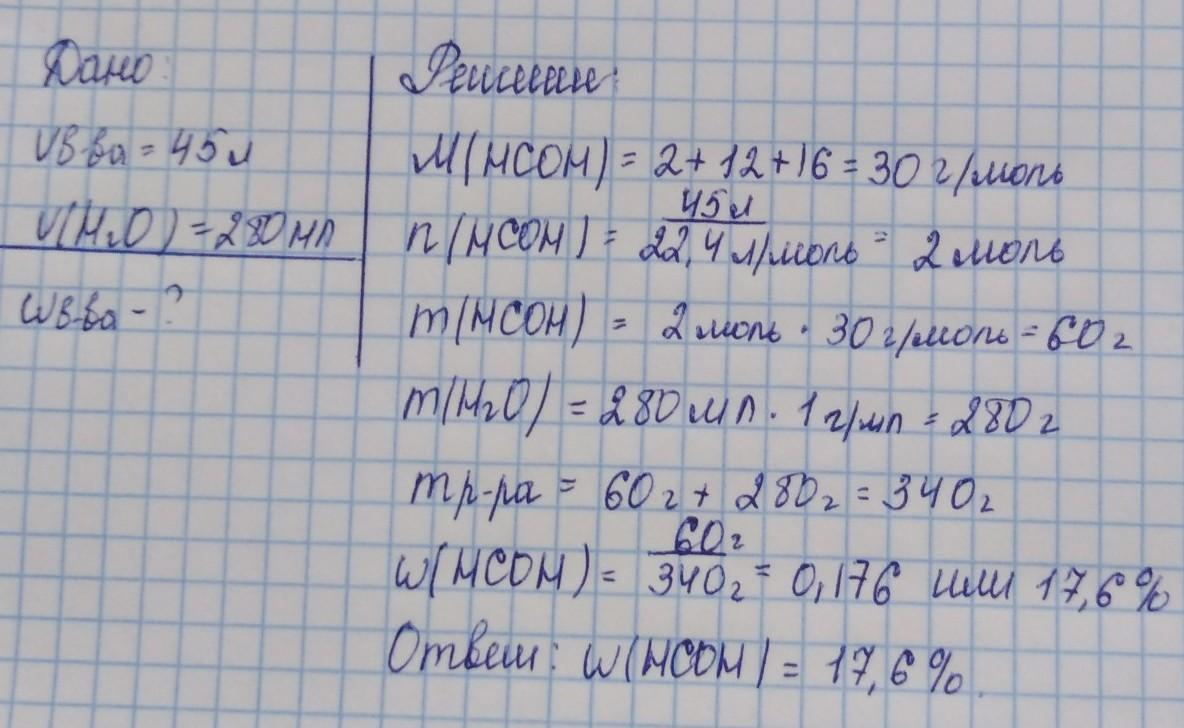 Дано:
Vв-ва = 45 л
V(H₂O) = 280 мл
Wв-ва - ?
Решение:
M(HCOH) = 2 + 12 + 16 = 30 г/моль
n(HCOH) = 45 л / 22,4 л/моль = 2 моль
m(HCOH) = 2 моль · 30 г/моль = 60 г
m(H₂O) = 280 мл · 1 г/мл = 280 г
mр-ра = 60 г + 280 г = 340 г
w(HCOH) = 60 г / 340 г = 0,176 или 17,6 %
Ответ: w(HCOH) = 17,6 %.